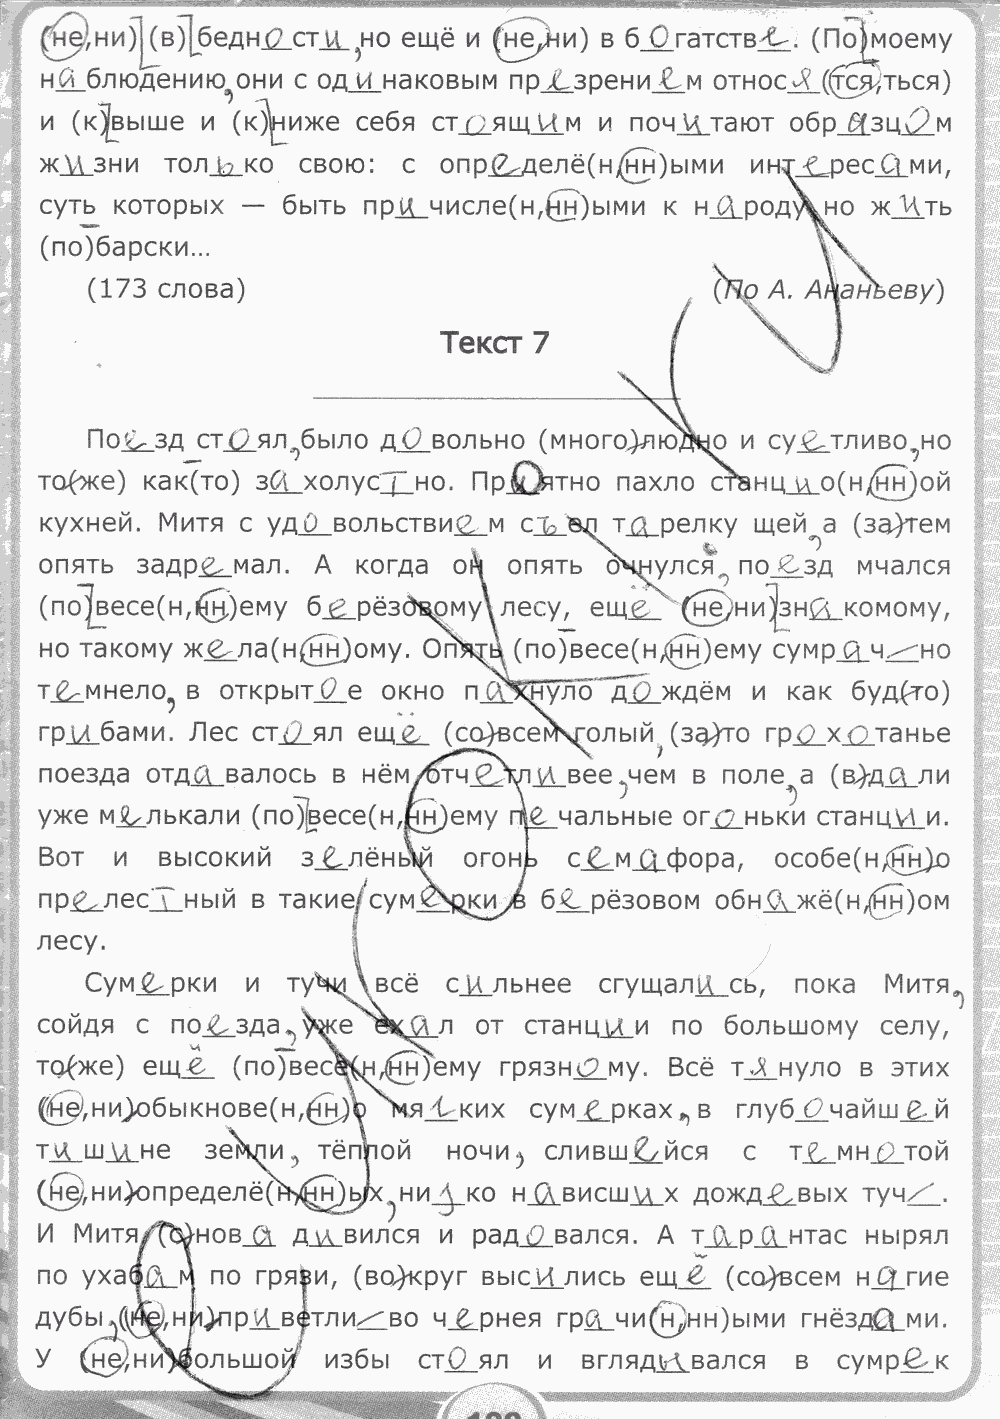 (не,ни) (в) бедности, но ещё и (не,ни) в богатстве. (По)моему
наблюдению, они с одинаковым презрением относя(тся,ться)
и (к)выше и (к)ниже себя стоящим и почитают образцом
жизни только свою: с определё(н,нн)ыми интересами,
суть которых — быть причисле(н,нн)ыми к народу, но жить
(по)барски...
(173 слова) (По А. Ананьеву)
Текст 7
Поезд стоял, было довольно (много)людно и суетливо, но
то(же) как(то) захолустно. Приятно пахло станцио(н,нн)ой
кухней. Митя с удовольствием съел тарелку щей, а (за)тем
опять задремал. А когда он опять очнулся, поезд мчался
(по)весе(н,нн)ему берёзовому лесу, ещё (не,ни)знакомому,
но такому жела(н,нн)ому. Опять (по)весе(н,нн)ему сумрачно
темнело, в открытое окно пахнуло дождём и как буд(то)
грибами. Лес стоял ещё (со)всем голый, (за)то грохотанье
поезда отдавалось в нём отчетливее, чем в поле, а (в)дали
уже мелькали (по)весе(н,нн)ему печальные огоньки станции.
Вот и высокий зелёный огонь семафора, особе(н,нн)о
прелестный в такие сумерки в берёзовом обнажё(н,нн)ом
лесу.
Сумерки и тучи всё сильнее сгущались, пока Митя,
сойдя с поезда, уже ехал от станции по большому селу,
то(же) ещё (по)весе(н,нн)ему грязному. Всё тянуло в этих
(не,ни)обыкнове(н,нн)о мягких сумерках, в глубочайшей
тишине земли, тёплой ночи, слившейся с темнотой
(не,ни)определё(н,нн)ых, низко нависших дождевых туч.
И Митя (с)нова дивился и радовался. А тарантас нырял
по ухабам по грязи, (во)круг высились ещё (со)всем нагие
дубы, (не,ни)приветливо чернея грачи(н,нн)ыми гнёздами.
У (не,ни)большой избы стоял и вглядывался в сумрек
сочки.ру